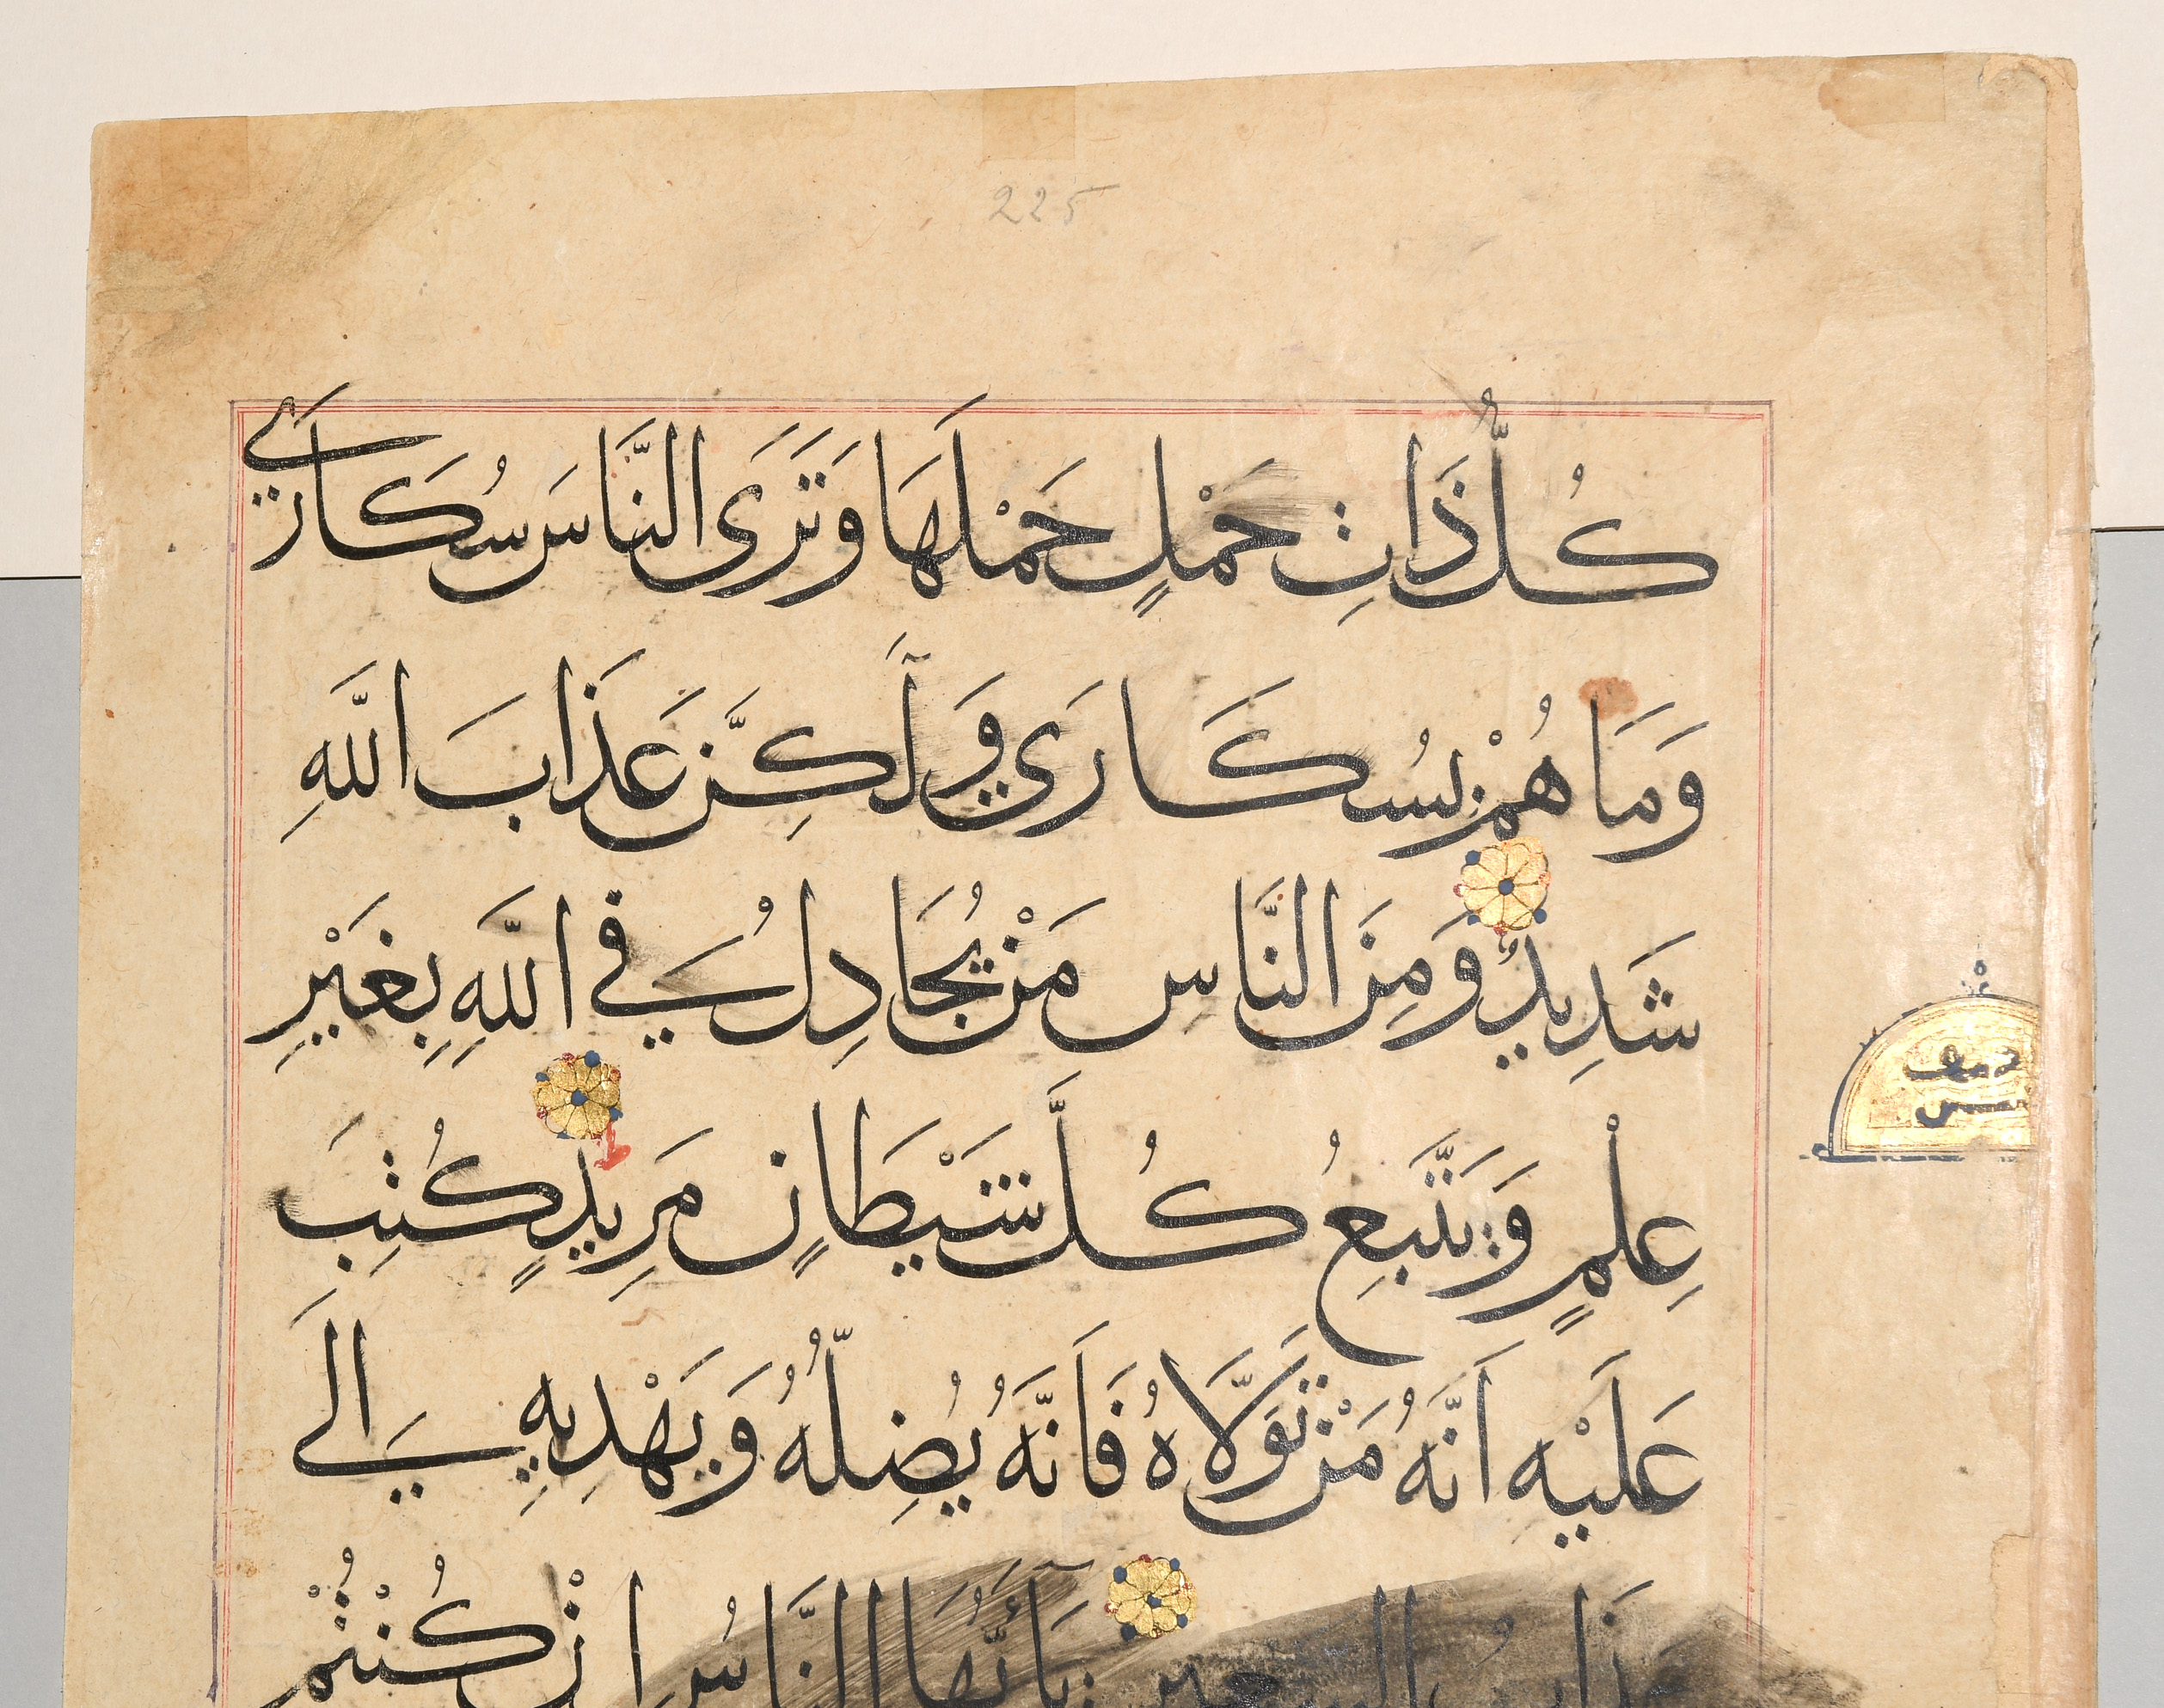 225
كُلُّ ذَاتِ حَمْلٍ حَمْلَهَا وَتَرَى النَّاسَ سُكَارَي
وَمَا هُمْ بِسُكَارَي وَلَٰكِنَّ عَذَابَ اللَّهِ
شَدِيدٌ وَمِنَ النَّاسِ مَنْ يُجَادِلُ فِي اللَّهِ بِغَيْرِ
عِلْمٍ وَيَتَّبِعُ كُلَّ شَيْطَانٍ مَرِيدٍ كُتِبَ
عَلَيْهِ اَنَّهُ مَنْ تَوَلَّاهُ فَاَنَّهُ يُضِلُّهُ وَيَهْدِيهِ اِلَي
عَذَابِ السَّعِيرِ يَآ أَيُّهَا النَّاسُ اِنْ كُنْتُمْ